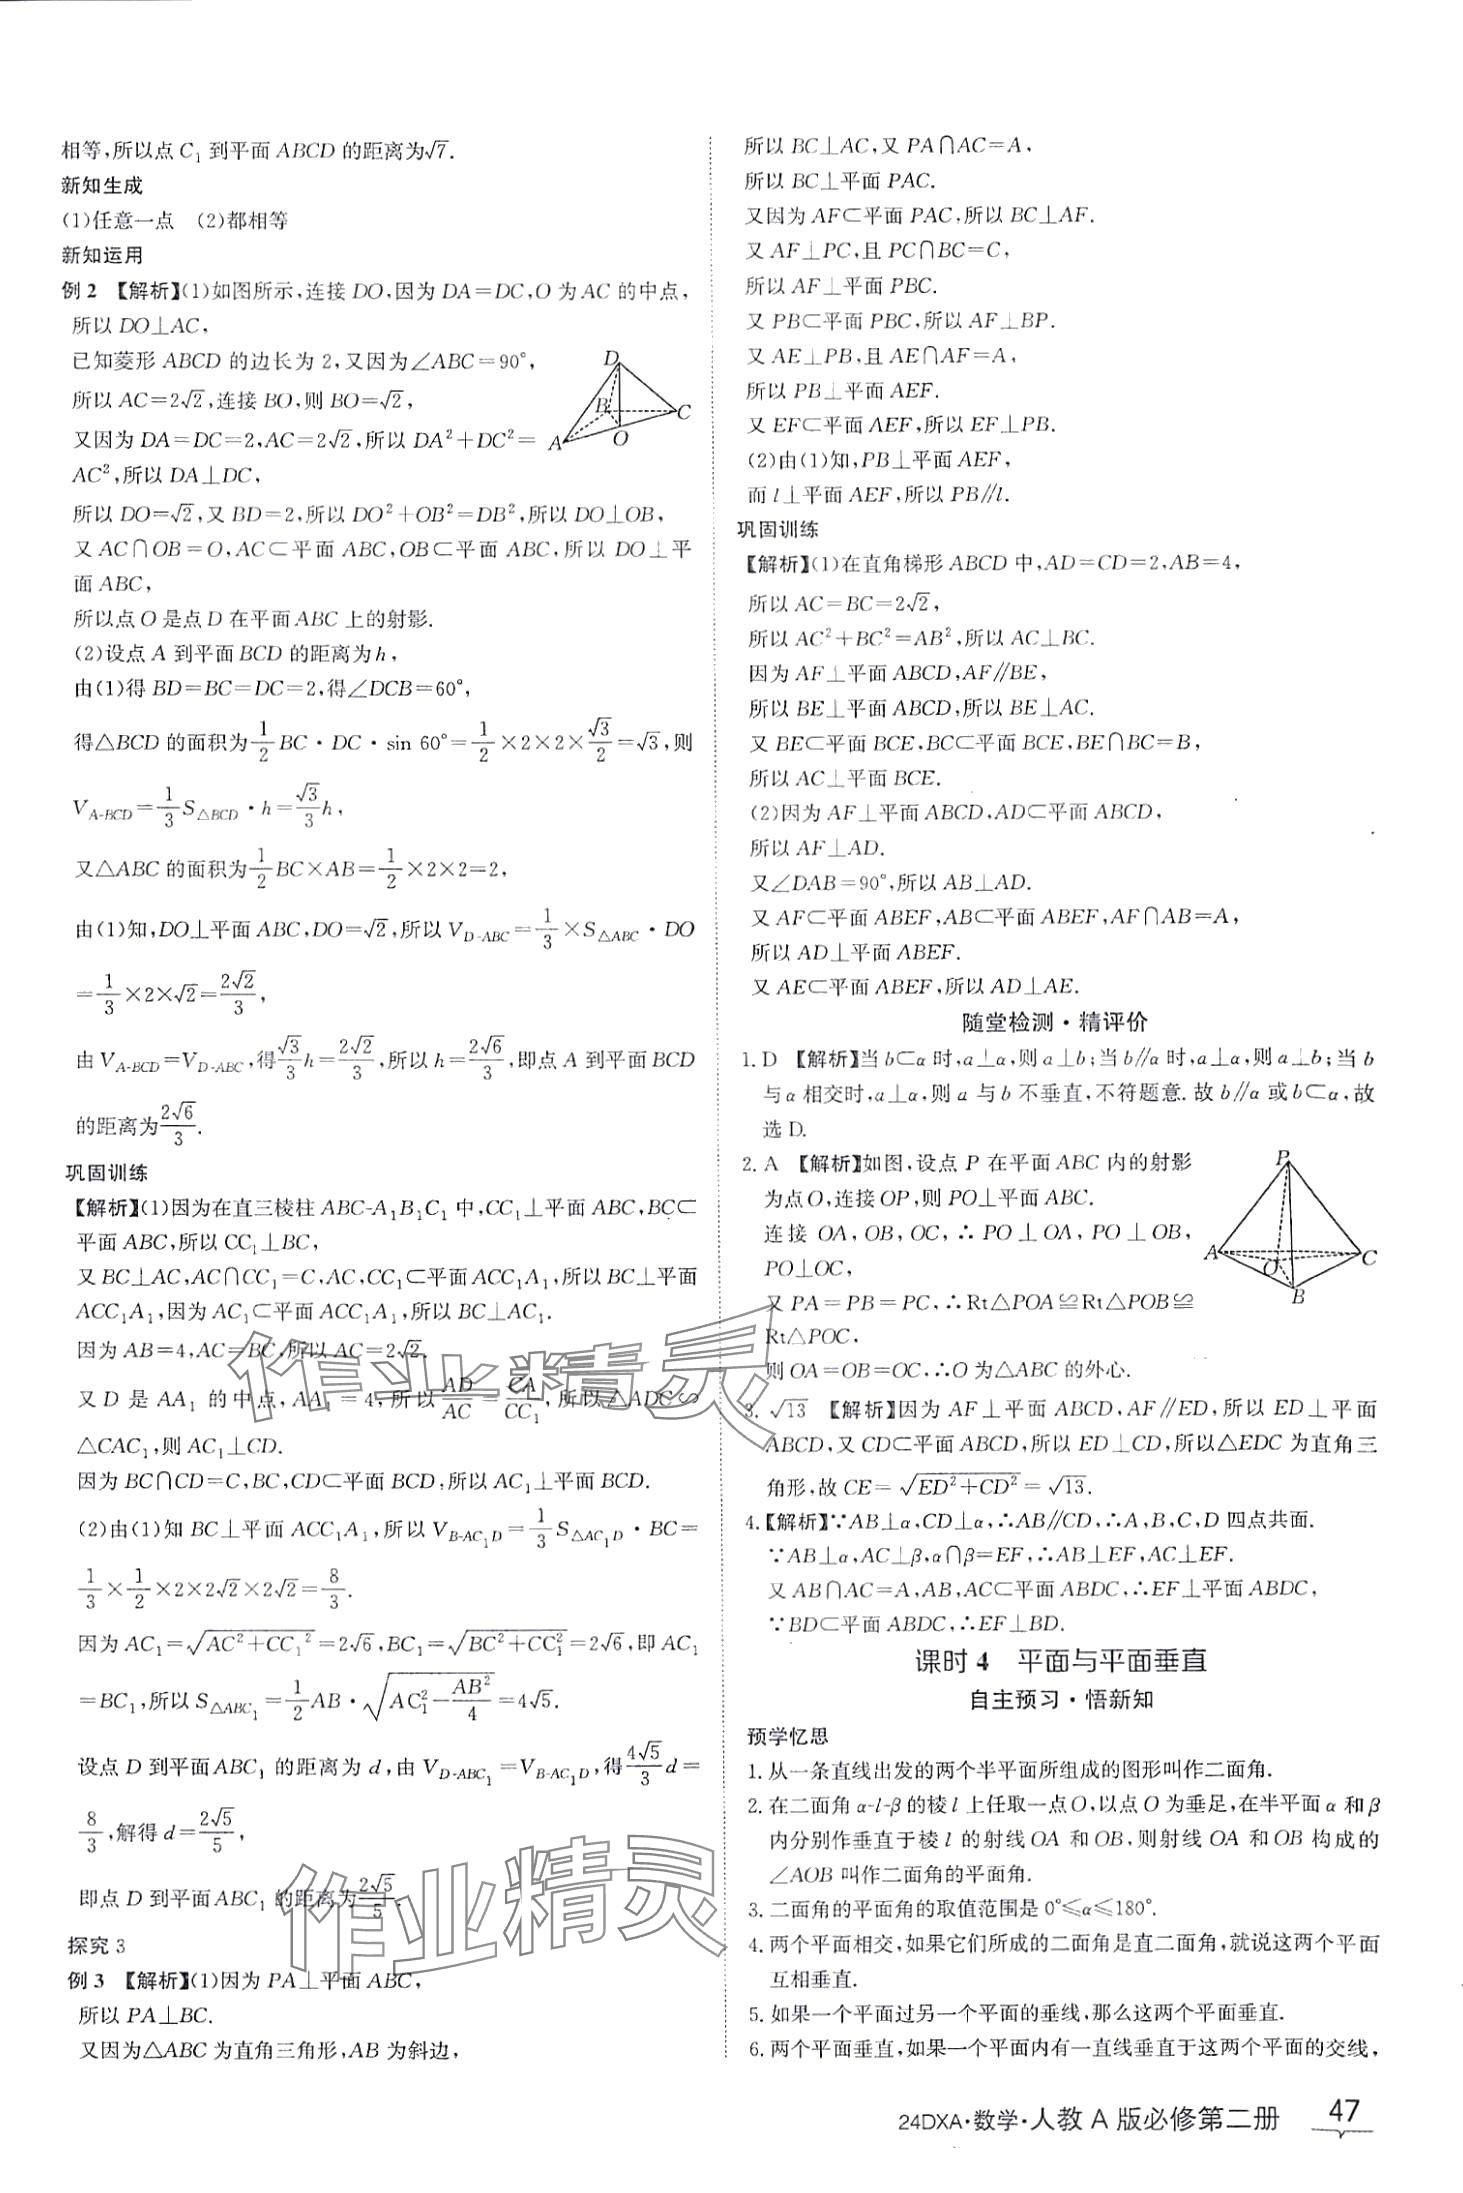 相等,所以点 C₁ 到平面 ABCD 的距离为√7.
新知生成
(1)任意一点 (2)都相等
新知运用
例 2 【解析】(1)如图所示,连接 DO,因为 DA=DC,O 为 AC 的中点,
所以 DO⊥AC,
已知菱形 ABCD 的边长为 2,又因为∠ABC=90°,
所以 AC=2√2,连接 BO,则 BO=√2,
又因为 DA=DC=2,AC=2√2,所以 DA²+DC²=
AC²,所以 DA⊥DC,
所以 DO=√2,又 BD=2,所以 DO²+OB²=DB²,所以 DO⊥OB,
又 AC∩OB=O,AC⊂平面 ABC,OB⊂平面 ABC,所以 DO⊥平
面 ABC,
所以点 O 是点 D 在平面 ABC 上的射影.
D
B
C
A
O
(2)设点 A 到平面 BCD 的距离为 h,
由(1)得 BD=BC=DC=2,得∠DCB=60°,
得△BCD 的面积为1/2 BC·DC·sin 60°=1/2×2×2×√3/2=√3,则
V_{A-BCD}=1/3 S_{△BCD}·h=√3/3 h,
又△ABC 的面积为1/2 BC×AB=1/2×2×2=2,
由(1)知,DO⊥平面 ABC,DO=√2,所以 V_{D-ABC}=1/3×S_{△ABC}·DO
=1/3×2×√2=2√2/3,
由 V_{A-BCD}=V_{D-ABC},得√3/3 h=2√2/3,所以 h=2√6/3,即点 A 到平面 BCD
的距离为2√6/3.
巩固训练
【解析】(1)因为在直三棱柱 ABC-A₁B₁C₁ 中,CC₁⊥平面 ABC,BC⊂
平面 ABC,所以 CC₁⊥BC,
又 BC⊥AC,AC∩CC₁=C,AC,CC₁⊂平面 ACC₁A₁,所以 BC⊥平面
ACC₁A₁,因为 AC₁⊂平面 ACC₁A₁,所以 BC⊥AC₁.
因为 AB=4,AC=BC,所以 AC=2√2.
又 D 是 AA₁ 的中点,AA₁=4,所以AD/AC=CA/CC₁,所以△ADC∽
△CAC₁,则 AC₁⊥CD.
因为 BC∩CD=C,BC,CD⊂平面 BCD,所以 AC₁⊥平面 BCD.
(2)由(1)知 BC⊥平面 ACC₁A₁,所以 V_{B-AC₁D}=1/3 S_{△AC₁D}·BC=
1/3×1/2×2×2√2×2√2=8/3.
因为 AC₁=√(AC²+CC₁²)=2√6,BC₁=√(BC²+CC₁²)=2√6,即 AC₁
=BC₁,所以 S_{△ABC₁}=1/2 AB·√(AC₁²-AB²/4)=4√5.
设点 D 到平面 ABC₁ 的距离为 d,由 V_{D-ABC₁}=V_{B-AC₁D},得4√5/3 d=
8/3,解得 d=2√5/5,
即点 D 到平面 ABC₁ 的距离为2√5/5.
探究 3
例 3 【解析】(1)因为 PA⊥平面 ABC,
所以 PA⊥BC.
又因为△ABC 为直角三角形,AB 为斜边,
所以 BC⊥AC,又 PA∩AC=A,
所以 BC⊥平面 PAC.
又因为 AF⊂平面 PAC,所以 BC⊥AF.
又 AF⊥PC,且 PC∩BC=C,
所以 AF⊥平面 PBC.
又 PB⊂平面 PBC,所以 AF⊥BP.
又 AE⊥PB,且 AE∩AF=A,
所以 PB⊥平面 AEF.
又 EF⊂平面 AEF,所以 EF⊥PB.
(2)由(1)知,PB⊥平面 AEF,
而 l⊥平面 AEF,所以 PB∥l.
巩固训练
【解析】(1)在直角梯形 ABCD 中,AD=CD=2,AB=4,
所以 AC=BC=2√2,
所以 AC²+BC²=AB²,所以 AC⊥BC.
因为 AF⊥平面 ABCD,AF∥BE,
所以 BE⊥平面 ABCD,所以 BE⊥AC.
又 BE⊂平面 BCE,BC⊂平面 BCE,BE∩BC=B,
所以 AC⊥平面 BCE.
(2)因为 AF⊥平面 ABCD,AD⊂平面 ABCD,
所以 AF⊥AD.
又∠DAB=90°,所以 AB⊥AD.
又 AF⊂平面 ABEF,AB⊂平面 ABEF,AF∩AB=A,
所以 AD⊥平面 ABEF.
又 AE⊂平面 ABEF,所以 AD⊥AE.
随堂检测·精评价
1. D 【解析】当 b⊂α 时,a⊥α,则 a⊥b;当 b∥α 时,a⊥α,则 a⊥b;当 b
与 α 相交时,a⊥α,则 a 与 b 不垂直,不符题意.故 b∥α 或 b⊂α,故
选 D.
2. A 【解析】如图,设点 P 在平面 ABC 内的射影
为点 O,连接 OP,则 PO⊥平面 ABC.
连接 OA,OB,OC,∴PO⊥OA,PO⊥OB,
PO⊥OC,
又 PA=PB=PC,∴Rt△POA≌Rt△POB≌
Rt△POC,
则 OA=OB=OC,∴O 为△ABC 的外心.
P
A
O
C
B
3. √13 【解析】因为 AF⊥平面 ABCD,AF∥ED,所以 ED⊥平面
ABCD,又 CD⊂平面 ABCD,所以 ED⊥CD,所以△EDC 为直角三
角形,故 CE=√(ED²+CD²)=√13.
4.【解析】∵AB⊥α,CD⊥α,∴AB∥CD,∴A,B,C,D 四点共面.
∵AB⊥α,AC⊥β,α∩β=EF,∴AB⊥EF,AC⊥EF.
又 AB∩AC=A,AB,AC⊂平面 ABDC,∴EF⊥平面 ABDC,
∵BD⊂平面 ABDC,∴EF⊥BD.
课时 4 平面与平面垂直
自主预习·悟新知
预学忆思
1. 从一条直线出发的两个半平面所组成的图形叫作二面角.
2. 在二面角 α-l-β 的棱 l 上任取一点 O,以点 O 为垂足,在半平面 α 和 β
内分别作垂直于棱 l 的射线 OA 和 OB,则射线 OA 和 OB 构成的
∠AOB 叫作二面角的平面角.
3. 二面角的平面角的取值范围是 0°≤α≤180°.
4. 两个平面相交,如果它们所成的二面角是直二面角,就说这两个平面
互相垂直.
5. 如果一个平面过另一个平面的垂线,那么这两个平面垂直.
6. 两个平面垂直,如果一个平面内有一直线垂直于这两个平面的交线,
作业精灵
作业精灵
24DXA·数学·人教 A 版必修第二册 47